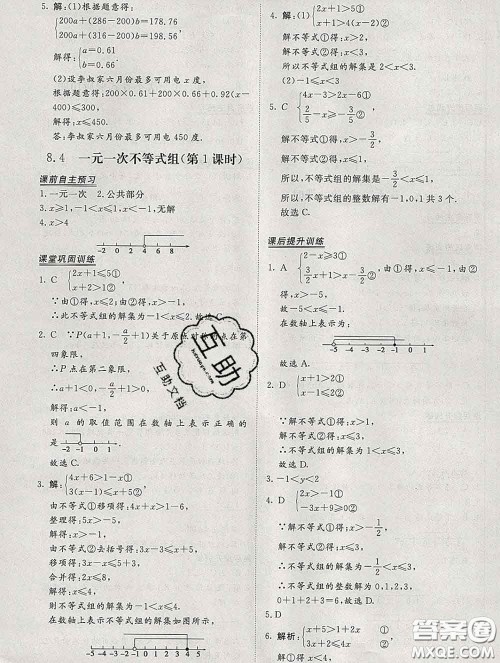 5. 解:(1)根据题意得:
{200a+(286-200)b=178.76
200a+(316-200)b=198.56
解得:{a=0.61
b=0.66
(2)设李叔家六月份最多可用电 x 度,
根据题意得:200×0.61+200×0.66+0.92(x-400)≤300,
解得:x≤450.
答:李叔家六月份最多可用电 450 度.
8.4 一元一次不等式组(第 1 课时)
课前自主预习
1. 一元一次 2. 公共部分
3. x≥1,-1<x≤1,x≤-1,无解
4. x>4
-2 0 2 4 6 8
课堂巩固训练
1. C {2x+1≤5①
x+2>1②
∵由①得:x≤2,由②得:x>-1,
∴此不等式组的解集为-1<x≤2.
2. C ∵P(a+1,-a/2+1)关于原点对称的点在第
四象限,
∴P 点在第二象限,
∴a+1<0,-a/2+1>0,
解得:a<-1,
则 a 的取值范围在数轴上表示正确的
是
-2 -1 0 1 2 3
故选 C.
3. 解:{4x+6>1-x①
3(x-1)≤x+5②
由不等式①移项得:4x+x>1-6,
整理得:5x>-5,
解得:x>-1,
由不等式②去括号得:3x-3≤x+5,
移项得:3x-x≤5+3,
合并得:2x≤8,
解得:x≤4,
则不等式组的解集为-1<x≤4.
在数轴上表示不等式组的解集如图所示,
-5 -4 -3 -2 -1 0 1 2 3 4 5
4. 解:(1){2x+1>5①
x+1>4(x-2)②
解不等式①得:x>2,
解不等式②得:x<3,
所以不等式组的解集是 2<x<3.
(2)-1≤x<3
5. C {4x-3>2x-6①
2/5-x≥-3/5②
解不等式①得:x>-3/2,
解不等式②得:x≤1,
所以不等式组的解集是-3/2<x≤1,
所以不等式组的整数解有-1,0,1 共 3 个.
故选 C.
课后提升训练
1. A {2-x≥3①
3/2x+1>x-3/2②
由①得:x≤-1,
由②得:x>-5,
故-5<x≤-1.
在数轴上表示为:
-5 -1 0
故选 A.
2. D {x+1>2①
x-1≤2②
∵解不等式①得:x>1,
解不等式②得:x≤3,
∴不等式组的解集为 1<x≤3.
故选 D.
3. -1<y<2
4. D {2x+1>0①
-3x+9≥0②
∵解不等式①得:x>-1/2,
解不等式②得:x≤3,
∴不等式组的解集为-1/2<x≤3,
∴不等式组的整数解为 0,1,2,3,
0+1+2+3=6.
故选 D.
6. 解析:{x+5>2①
解①得:x>-3,
互助
互助文档
答案圈
MXQE.COM